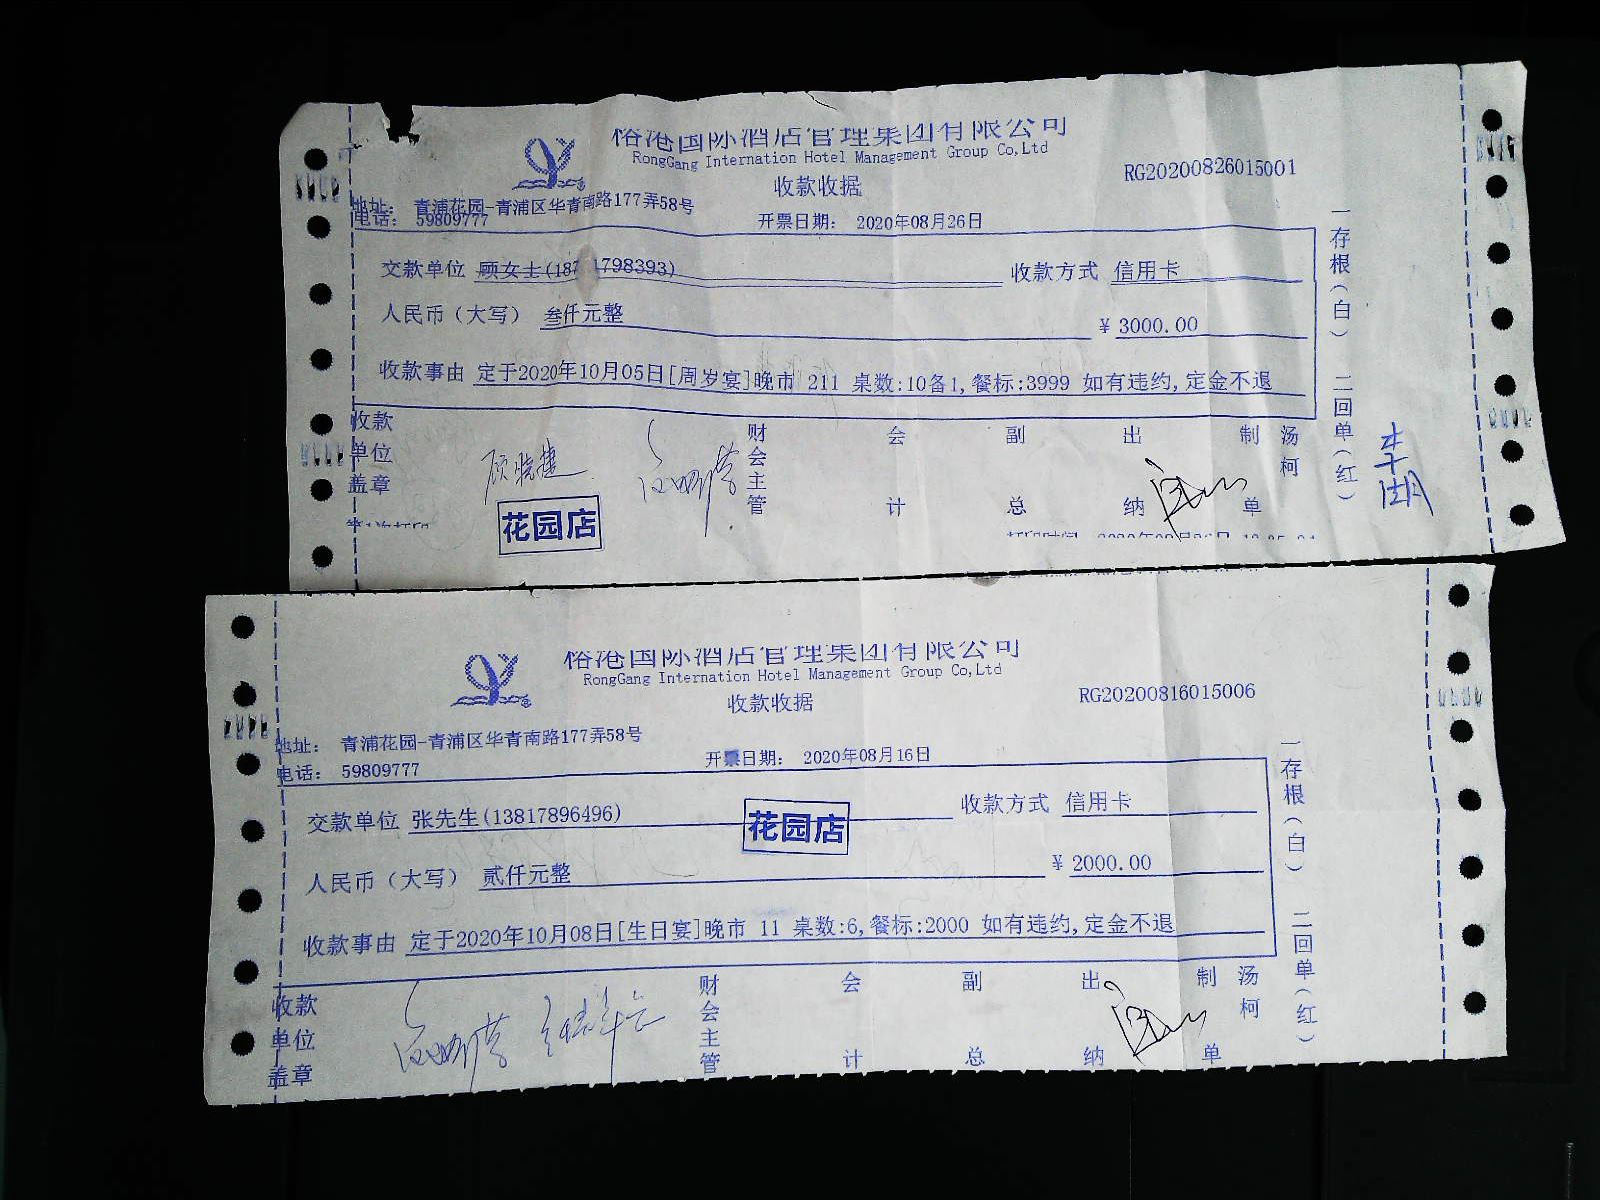 榕港国际酒店管理集团有限公司
RongGang Internation Hotel Management Group Co,Ltd
收款收据
RG20200826015001
地址： 青浦花园-青浦区华青南路177弄58号
电话： 59809777
开票日期： 2020年08月26日
交款单位 顾女士(187 1798393)
收款方式 信用卡
人民币（大写） 叁仟元整
¥ 3000.00
收款事由 定于2020年10月05日[周岁宴]晚市 211 桌数:10备1,餐标:3999 如有违约,定金不退
一存根（白） 二回单（红）
收款单位盖章
财会主管
会计
副总
出纳
制单
汤柯
花园店
榕港国际酒店管理集团有限公司
RongGang Internation Hotel Management Group Co,Ltd
收款收据
RG20200816015006
地址： 青浦花园-青浦区华青南路177弄58号
电话： 59809777
开票日期： 2020年08月16日
交款单位 张先生(13817896496)
花园店
收款方式 信用卡
人民币（大写） 贰仟元整
¥ 2000.00
收款事由 定于2020年10月08日[生日宴]晚市 11 桌数:6,餐标:2000 如有违约,定金不退
一存根（白） 二回单（红）
收款单位盖章
财会主管
会计
副总
出纳
制单
汤柯